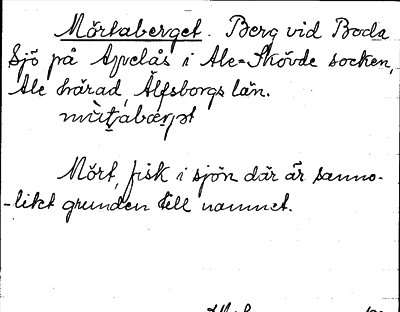 Mörtaberget. Berg vid Boda
Sjö på Apvelås i Ale-Skövde socken,
Ale härad, Älfsborgs län.
Mört, fisk i sjön där är sanno-
-likt grunden till namnet.